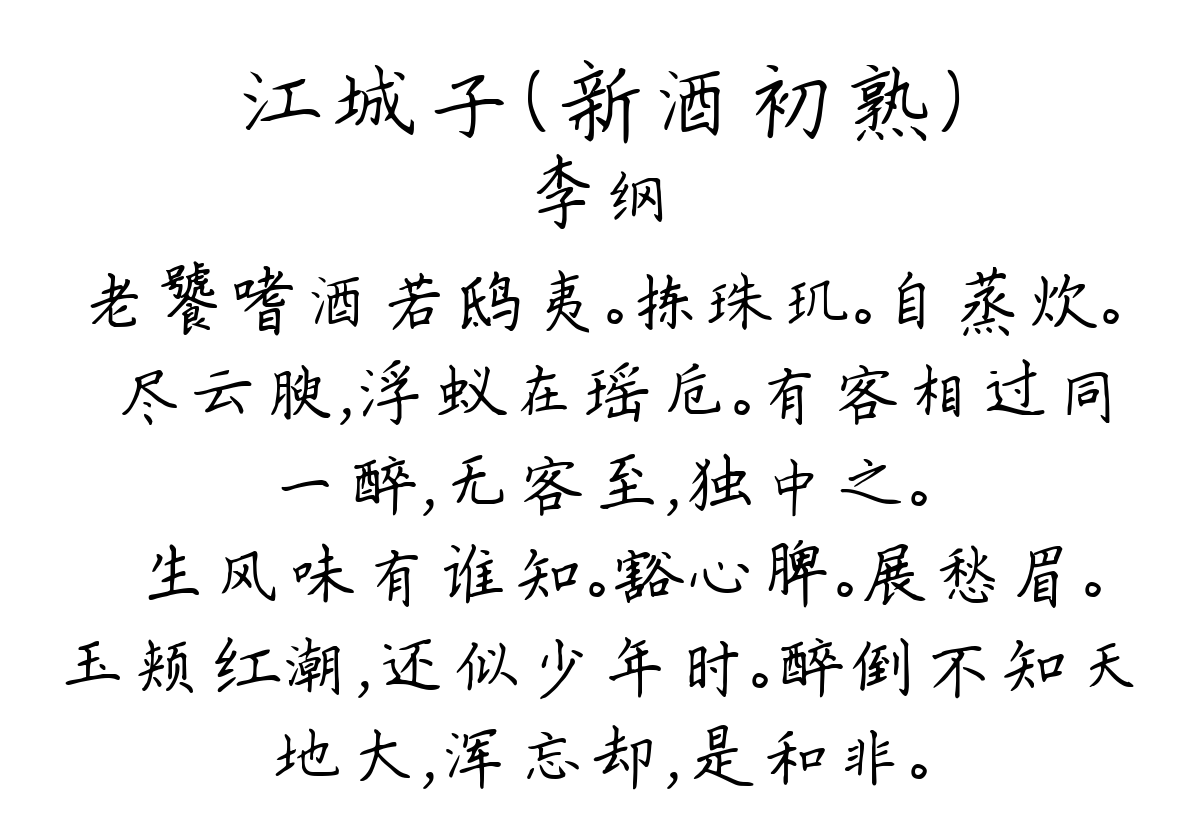 江城子(新酒初熟)
李纲
老饕嗜酒若鸱夷。拣珠玑。自蒸炊。
尽云腴,浮蚁在瑶卮。有客相过同
一醉,无客至,独中之。
生风味有谁知。豁心脾。展愁眉。
玉颊红潮,还似少年时。醉倒不知天
地大,浑忘却,是和非。